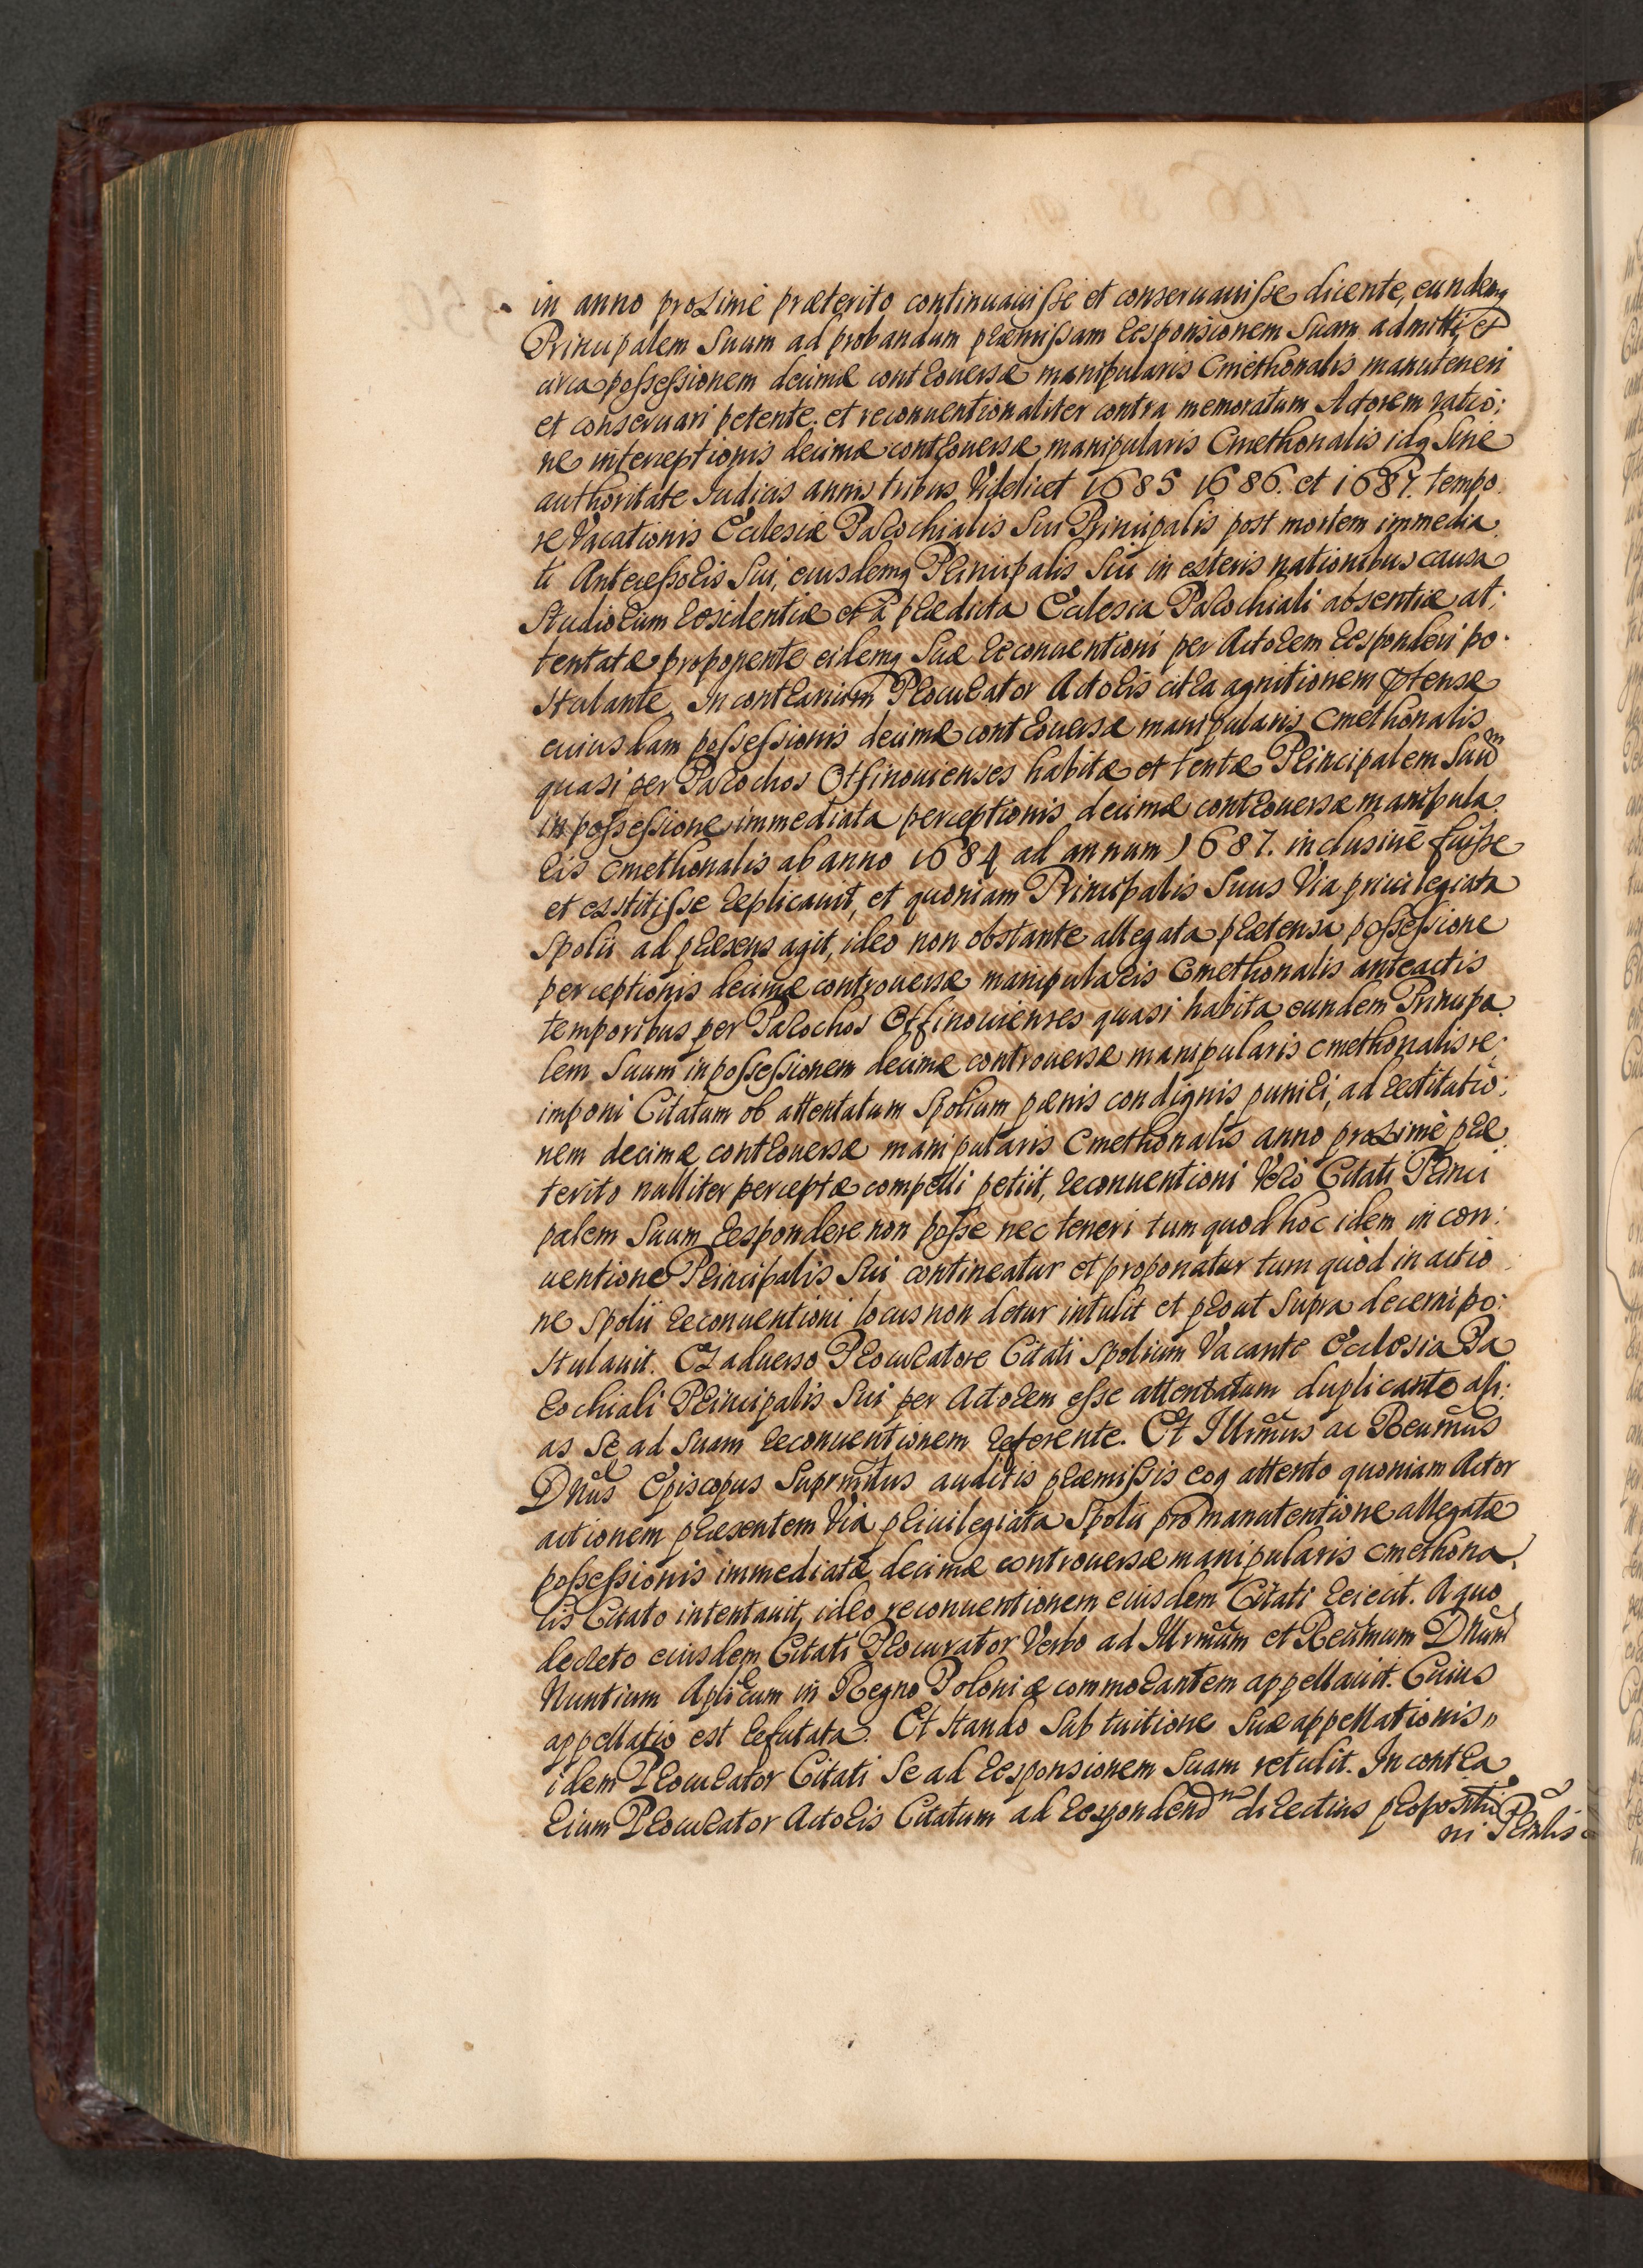 in anno proximè præterito continuauisse et conseruauisse dicente, eundemq
Principalem Suum ad probandum præmissam responsionem Suam admitti, et
circa possessionem decimæ controuersæ manipularis Cmethonalis manuteneri
et conseruari petente. et reconuentionaliter contra memoratum Actorem ratio:
ne interceptionis decimæ controuersæ manipularis Cmethonalis idq Sine
authoritate Iudicis annis tribus Videlicet 1685 1686. et 1687. tempo.
re Vacationis Ecclesiæ Parochialis Sui Principalis post mortem immedia.
ti Antecessoris Sui, eiusdemq Principalis Sui in exteris nationibus causa
Studiorum residentiæ et à prædicta Ecclesia Parochiali absentiæ at:
tentatæ proponente eidemq Suæ reconuentioni per Actorem responderi po.
stulante. In contrarium Procurator Actoris citra agnitionem ptensæ
cuiusdam possessionis decimæ controuersæ manipularis Cmethonalis
quasi per Parochos Otfinouienses habitæ et tentæ Principalem Suum
in possessione immediata perceptionis decimæ controuersæ manipula.
ris Cmethonalis ab anno 1684 ad annum 1687. inclusiuè fuisse
et exstitisse replicauit, et quoniam Principalis Suus Via priuilegiata
Spolii ad præsens agit, ideo non obstante allegata prætensa possessione
perceptionis decimæ controuersæ manipularis Cmethonalis anteactis
temporibus per Parochos Otffinouienses quasi habita eundem Principa.
lem Suum in possessionem decimæ controuersæ manipularis cmethonalis re:
imponi Citatum ob attentatum Spolium pænis condignis puniri, ad restitutio:
nem decimæ controuersæ manipularis Cmethonalis anno proximè præ
terito nulliter perceptæ compelli petiit, reconuentioni Verò Citati Princi
palem Suum respondere non posse nec teneri tum quod hoc idem in con:
uentione Principalis Sui contineatur et proponatur tum quòd in actio
ne Spolii reconuentioni locus non detur intulit et prout Supra decerni po:
stulauit. Ex aduerso Procuratore Citati Spolium Vacante Ecclesia Pa
rochiali Principalis Sui per Actorem esse attentatum duplicante ali:
as Se ad Suam reconuentionem referente. Et Illrmus ac Reumus
Dnus Episcopus Suprmtus auditis præmissis eoq attento quoniam Actor
actionem præsentem Via priuilegiata Spolii pro manutentione allegatæ
possessionis immediatæ decimæ controuersæ manipularis cmethona
lis Citato intentauit, ideo reconuentionem eiusdem Citati reiecit. A quo
decreto eiusdem Citati Procurator Verbo ad Illrmum et Reumum Dnum
Nuntium Aplicum in Regno Poloniæ commorantem appellauit. Cuius
appellatio est refutata. Et stando Sub tuitione Suæ appellationis
idem Procurator Citati Se ad responsionem Suam retulit. In contra
rium Procurator Actoris Citatum ad respondendm directius propositi